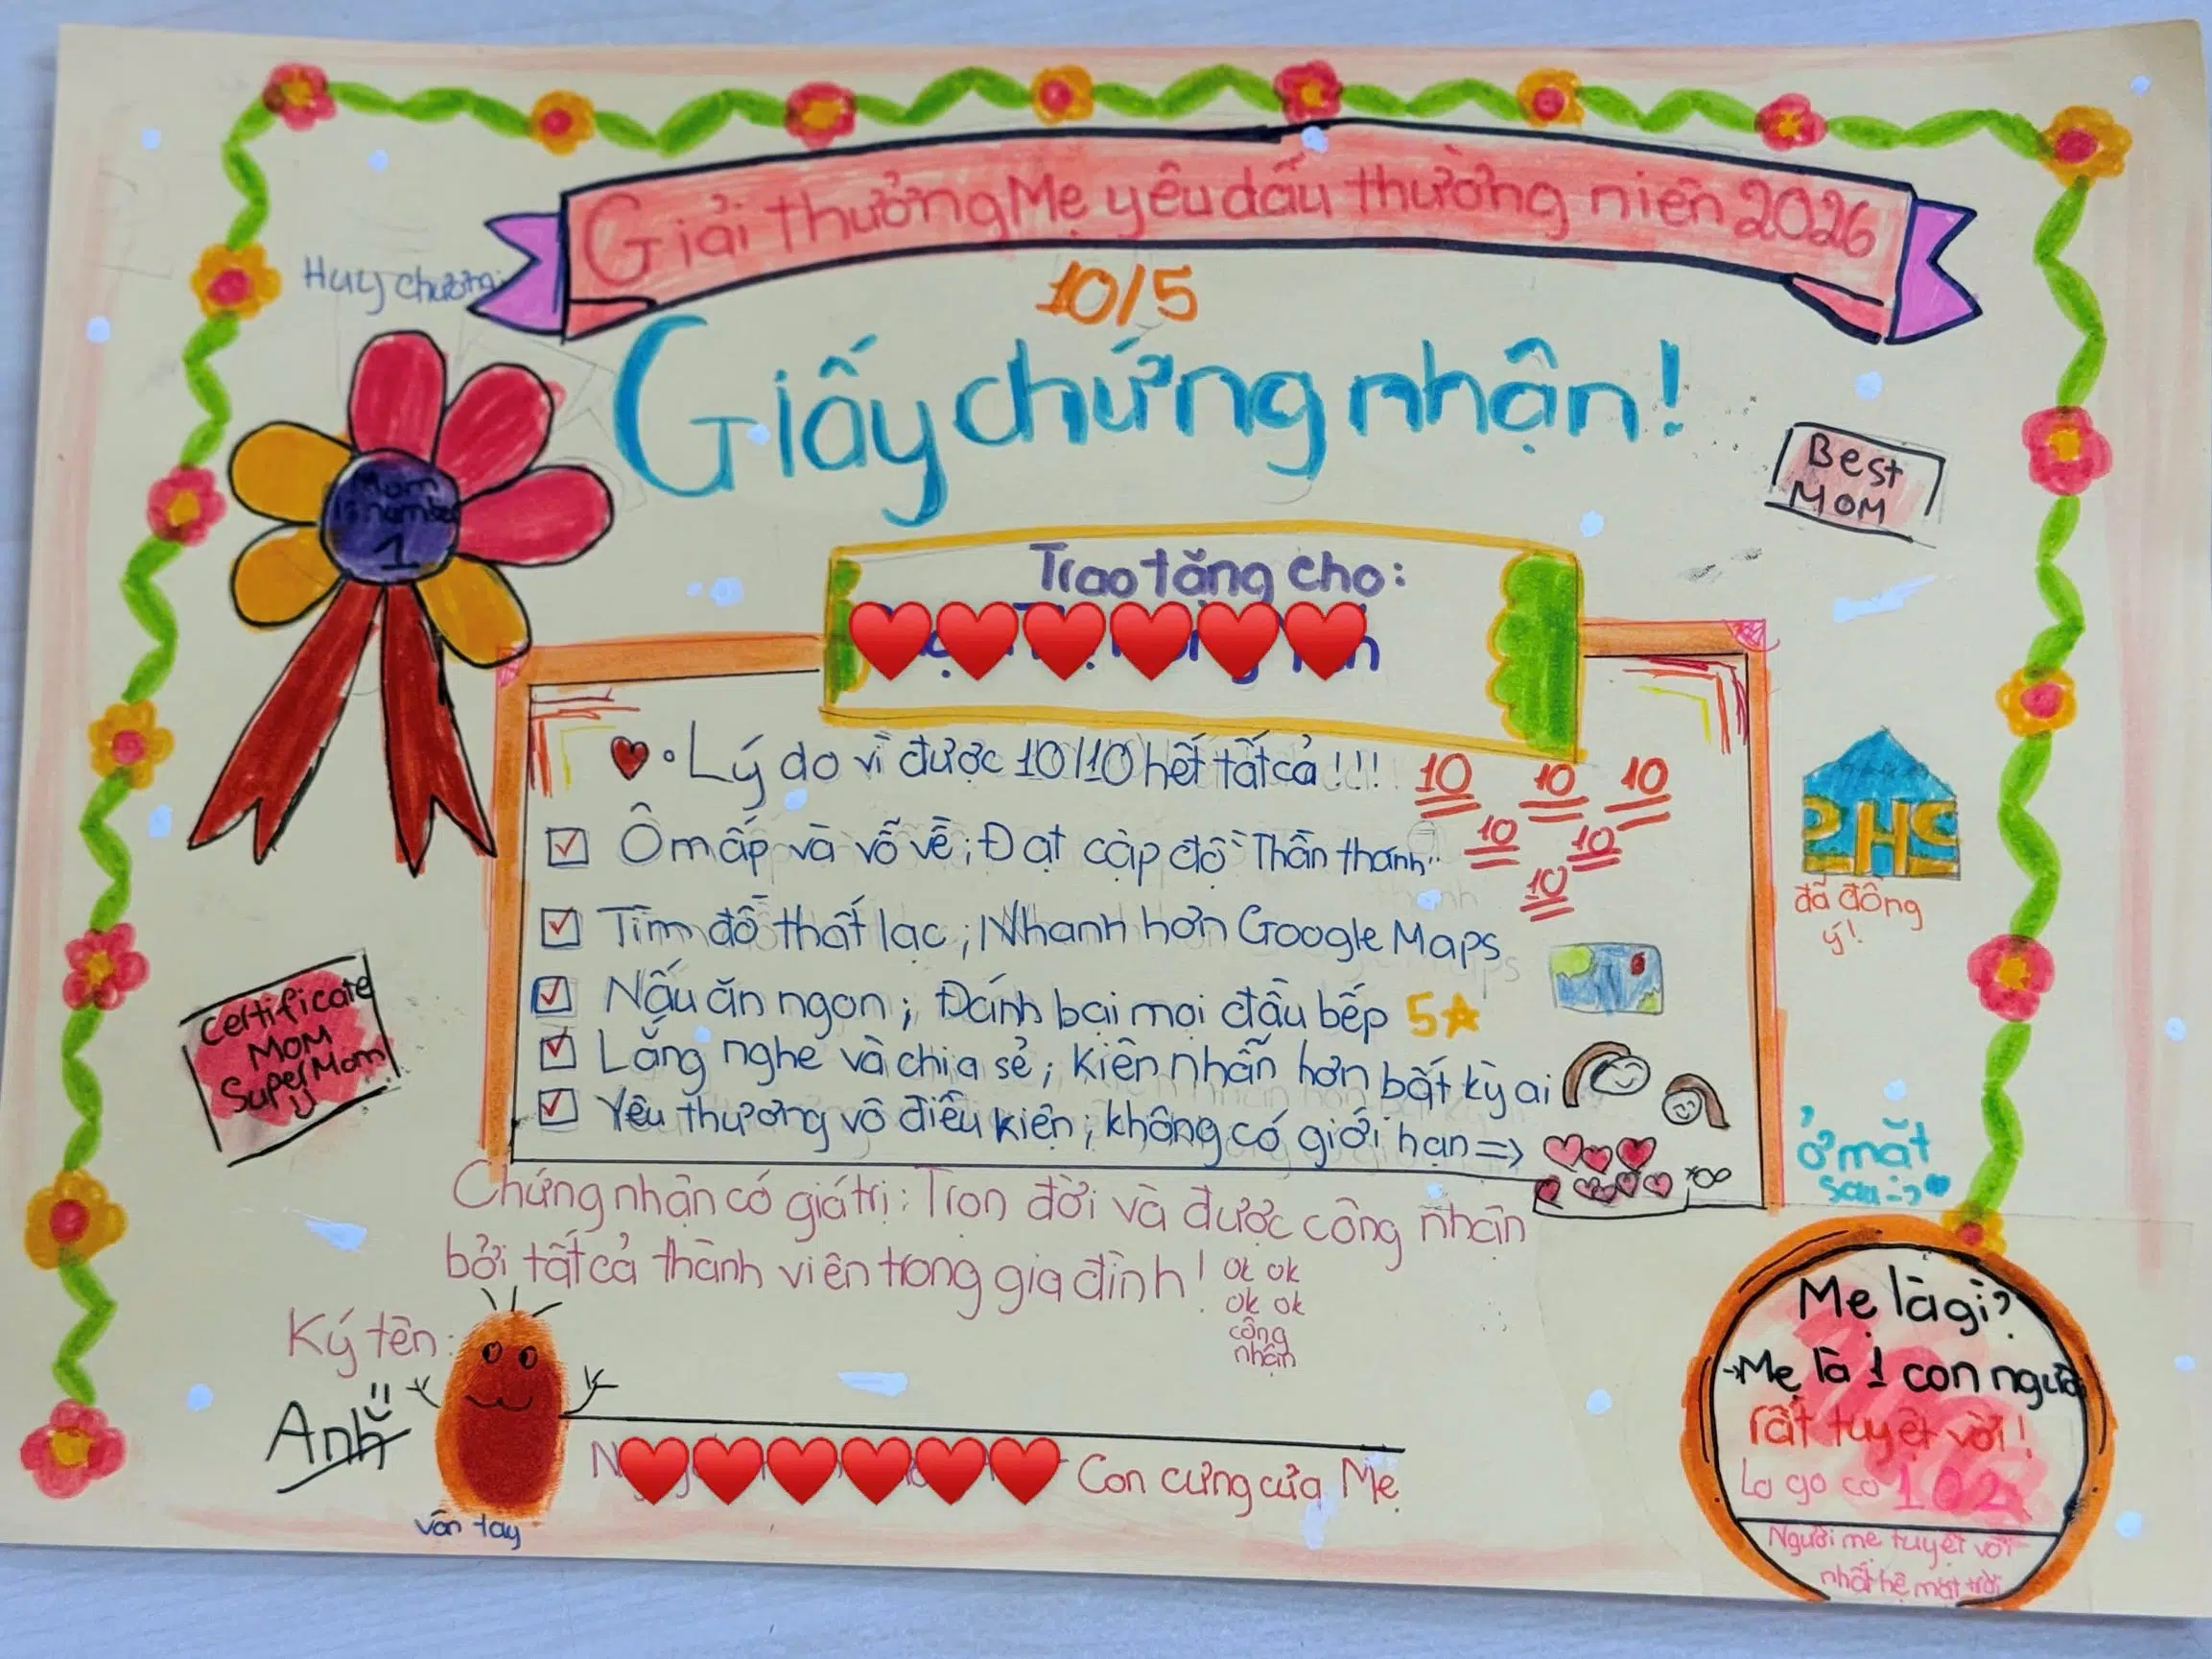 Giải thưởng Mẹ yêu dấu thường niên 2026
10/5
Huy chương
Giấy chứng nhận!
Mom
is number
1
BEST
MOM
Trao tặng cho:
Lý do vì được 10/10 hết tất cả!!!
10 10 10
10 10
10
Ôm ấp và vỗ về; Đạt cập độ "Thần thánh"
Tìm đồ thất lạc; Nhanh hơn Google Maps
Nấu ăn ngon; Đánh bại mọi đầu bếp 5
Lắng nghe và chia sẻ; Kiên nhẫn hơn bất kỳ ai
Yêu thương vô điều kiện; không có giới hạn =>
∞
PHS
đã đồng
ý!
Certificate
MOM
Super Mom
ở mặt
sau
Chứng nhận có giá trị: Trọn đời và được công nhận
bởi tất cả thành viên trong gia đình!
ok ok
ok ok
công
nhận
Ký tên:
Anh
vân tay
Con cưng của Mẹ
Mẹ là gì?
Mẹ là 1 con người
rất tuyệt vời!
Lo go có 102
Người mẹ tuyệt vời
nhất hệ mặt trời